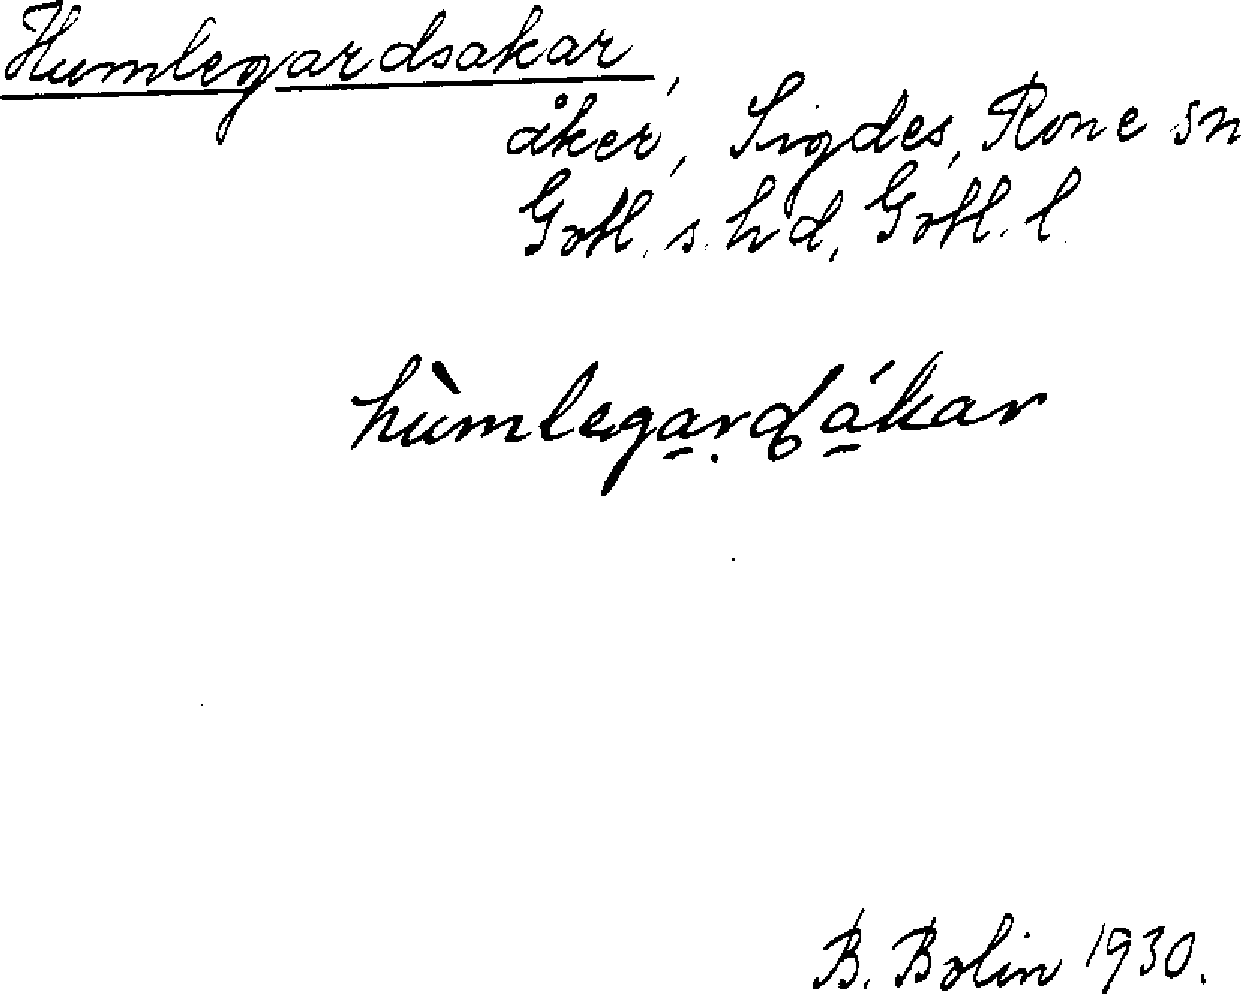 Humlegardsakar,
åker, Sigdes, Rone sn
Gotl. s. hd, Gotl. l.
hùmlegardákar
B. Bolin 1930.